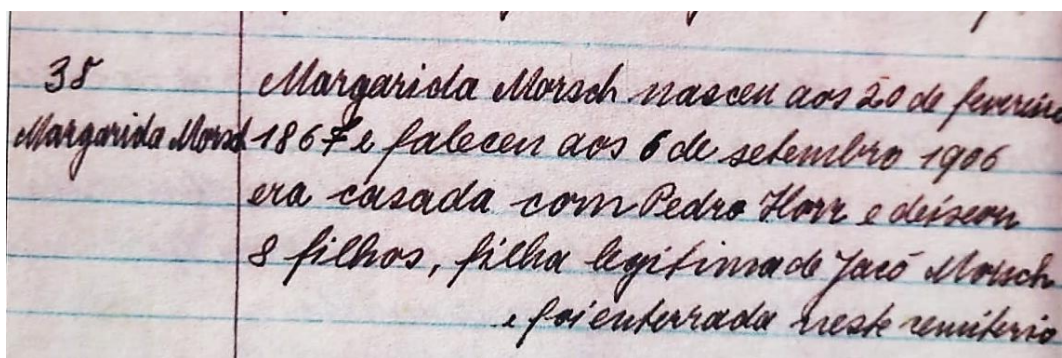 38
Margarida Morsch
Margarida Morsch nasceu aos 20 de fevereiro
1867 e faleceu aos 6 de setembro 1906
era casada com Pedro Horr e deixou
8 filhos, filha legitima de Jacó Morsch
e foi enterrada neste cemiterio